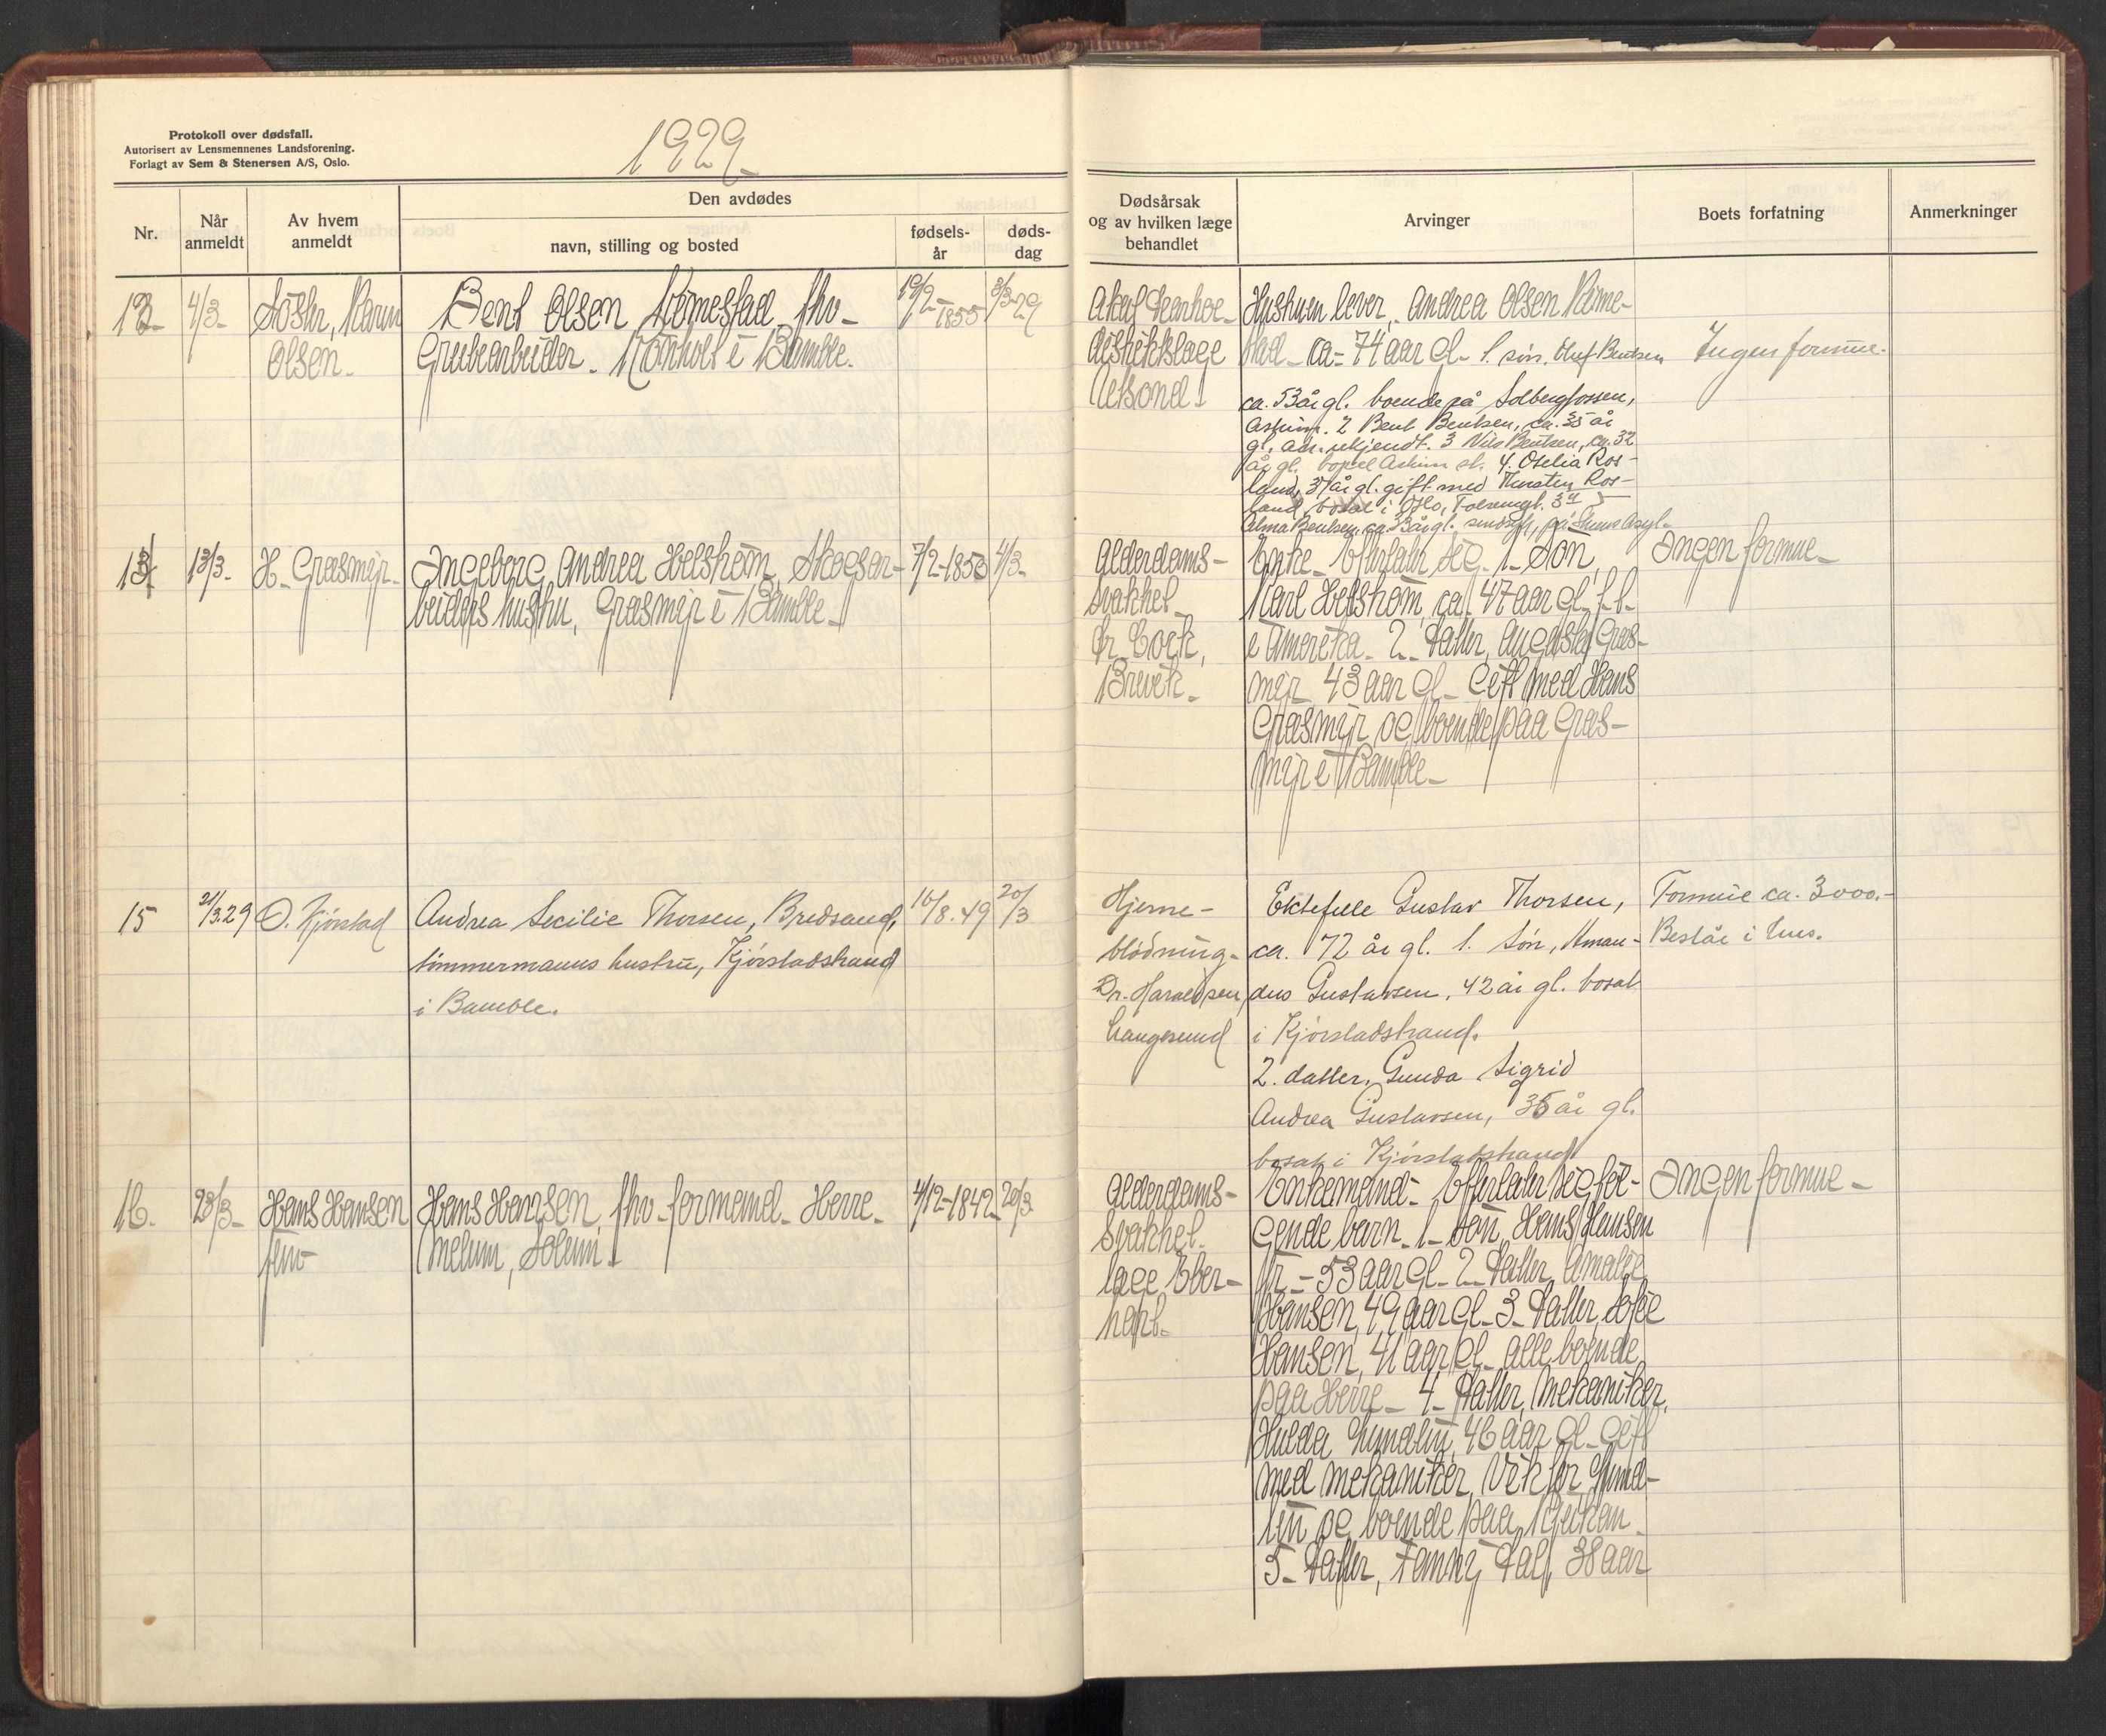 Protokoll over dødsfall.
Autorisert av Lensmennenes Landsforening.
Forlagt av Sem & Stenersen A/S, Oslo.
1929
Nr.
Når
anmeldt
Av hvem
anmeldt
Den avdødes
navn, stilling og bosted
fødsels-
år
døds-
dag
Dødsårsak
og av hvilken læge
behandlet
Arvinger
Boets forfatning
Anmerkninger
4/3-
Karen
Olsen-
Bent Olsen fhv-
Grubearbeider- i Bamble.
19/2-1855
3/3-29
Akut
distriktslæge
Hustruen lever, Andrea Olsen
stad- ca- 74 aar gl- 1. søn. Oluf Bentsen
ca. 53 år gl. boende på Solbergfossen,
Askim. 2 Bent Bentsen, ca. 35 år
gl. adr. ukjendt. 3 Nils Bentsen, ca. 32
år gl. bopel Askim st. 4. Otelia Ros-
land, 37 år gl. gift med Torsten Ros-
land, bosat i Oslo,
Alma Bentsen, ca. år gl. sindssyk, på
Ingen formue.
13/3-
H- Grasmyr-
Ingeborg Andrea Helstrøm, Skogsar-
beiders hustru, Grasmyr i Bamble-
7/2-1853
4/3-
Alderdoms-
svakhet-
dr Cock,
Brevik-
Enke- Efterlater seg- 1- søn,
Karl Helstrøm, ca. 47 aar gl- f.t.
i Amerika- 2- datter, Augusta Gras-
myr- 43 aar gl- gift med Hans
Grasmyr og boende paa Gras-
myr i Bamble-
Ingen formue-
15
21/3.29
O. Kjørstad
Andrea Secilie Thorsen, Bredsand,
tømmermanns hustru, Kjørstadstrand
i Bamble.
16/8.49
20/3
Hjerne-
blødning-
Dr. Haraldsen,
Langesund
Ektefelle Gustav Thorsen,
ca. 72 år gl. 1. søn, Aman-
dus Gustavsen, 42 år gl. bosat
i Kjørstadstrand.
2. datter, Gunda Sigrid
Andrea Gustavsen, 35 år gl.
bosat i Kjørstadstrand
Formue ca. 3000.-
Består i hus.
16.
23/3-
Hans Hansen
jun-
Hans Hansen, fhv- formand- Herre-
Melum, Solum-
4/12-1842-
20/3
Alderdoms-
svakhet-
læge Eber-
Enkemand- Efterlater seg føl-
gende barn- 1- søn, Hans Hansen
jr.- 53 aar gl- 2- datter, Amalie
Hansen, 49 aar gl- 3- datter, Sofie
Hansen, 41 aar gl- alle boende
paa Herre- 4- datter, Mekaniker,
Hulda Lundlin, 46 aar gl- gift
med mekaniker, Viktor Lund-
lin og boende paa Rjukan-
5- datter, Fanny Dal, 38 aar
Ingen formue-